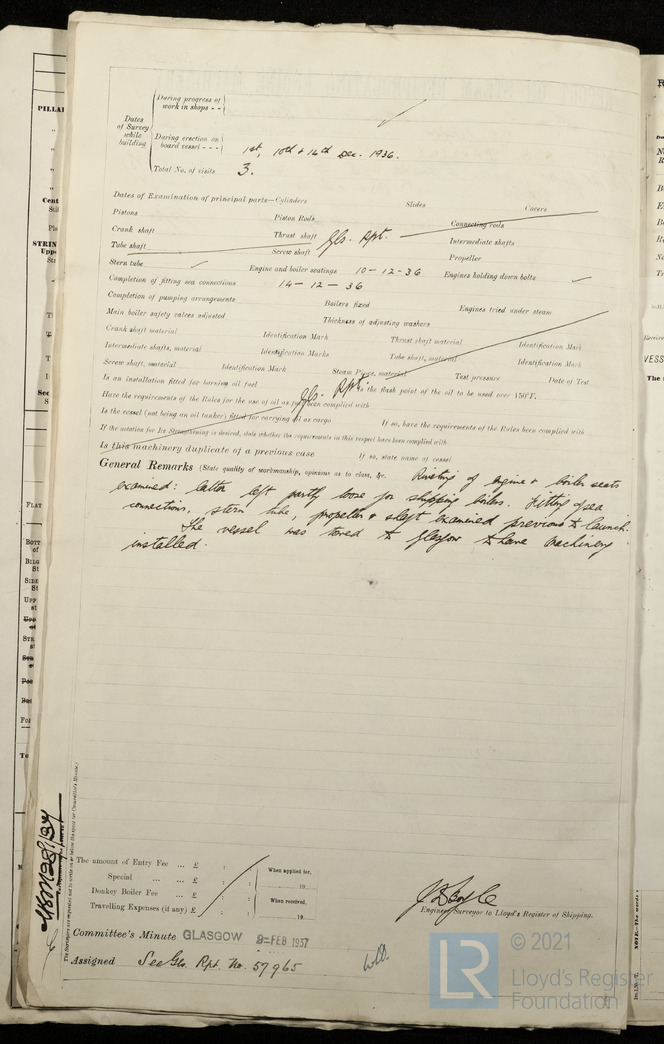 During progress of
work in shops - -
Dates
of Survey
while
building
During erection on
board vessel - - -
1st, 10th & 14th Dec. 1936.
Total No. of visits 3.
Dates of Examination of principal parts—Cylinders Slides Covers
Pistons Piston Rods Connecting rods
Crank shaft Thrust shaft Gls. Rpt. Intermediate shafts
Tube shaft Screw shaft Propeller
Stern tube Engine and boiler seatings 10-12-36 Engines holding down bolts
Completion of fitting sea connections 14-12-36
Completion of pumping arrangements Boilers fixed Engines tried under steam
Main boiler safety valves adjusted Thickness of adjusting washers
Crank shaft material Identification Mark Thrust shaft material Identification Mark
Intermediate shafts, material Identification Marks Tube shaft, material Identification Mark
Screw shaft, material Identification Mark Steam Pipes, material Test pressure Date of Test
Is an installation fitted for burning oil fuel Gls. Rpt. Is the flash point of the oil to be used over 150°F.
Have the requirements of the Rules for the use of oil as fuel been complied with
Is the vessel (not being an oil tanker) fitted for carrying oil as cargo If so, have the requirements of the Rules been complied with
If the notation for Ice Strengthening is desired, state whether the requirements in this respect have been complied with
Is this machinery duplicate of a previous case If so, state name of vessel
General Remarks (State quality of workmanship, opinions as to class, &c. Riveting of engine & boiler seats
examined: latter left partly loose for shipping boilers. Fitting of sea
connections, stern tube, propeller & shaft examined previous to launch.
The vessel was towed to Glasgow to have machinery
installed.
The amount of Entry Fee ... £ : : When applied for,
Special ... ... £ : : 19
Donkey Boiler Fee ... £ : : When received,
Travelling Expenses (if any) £ : : 19
Engineer Surveyor to Lloyd's Register of Shipping.
Committee's Minute GLASGOW 9-FEB 1937
Assigned See Gls. Rpt. No. 57965
LR © 2021
Lloyd's Register
Foundation